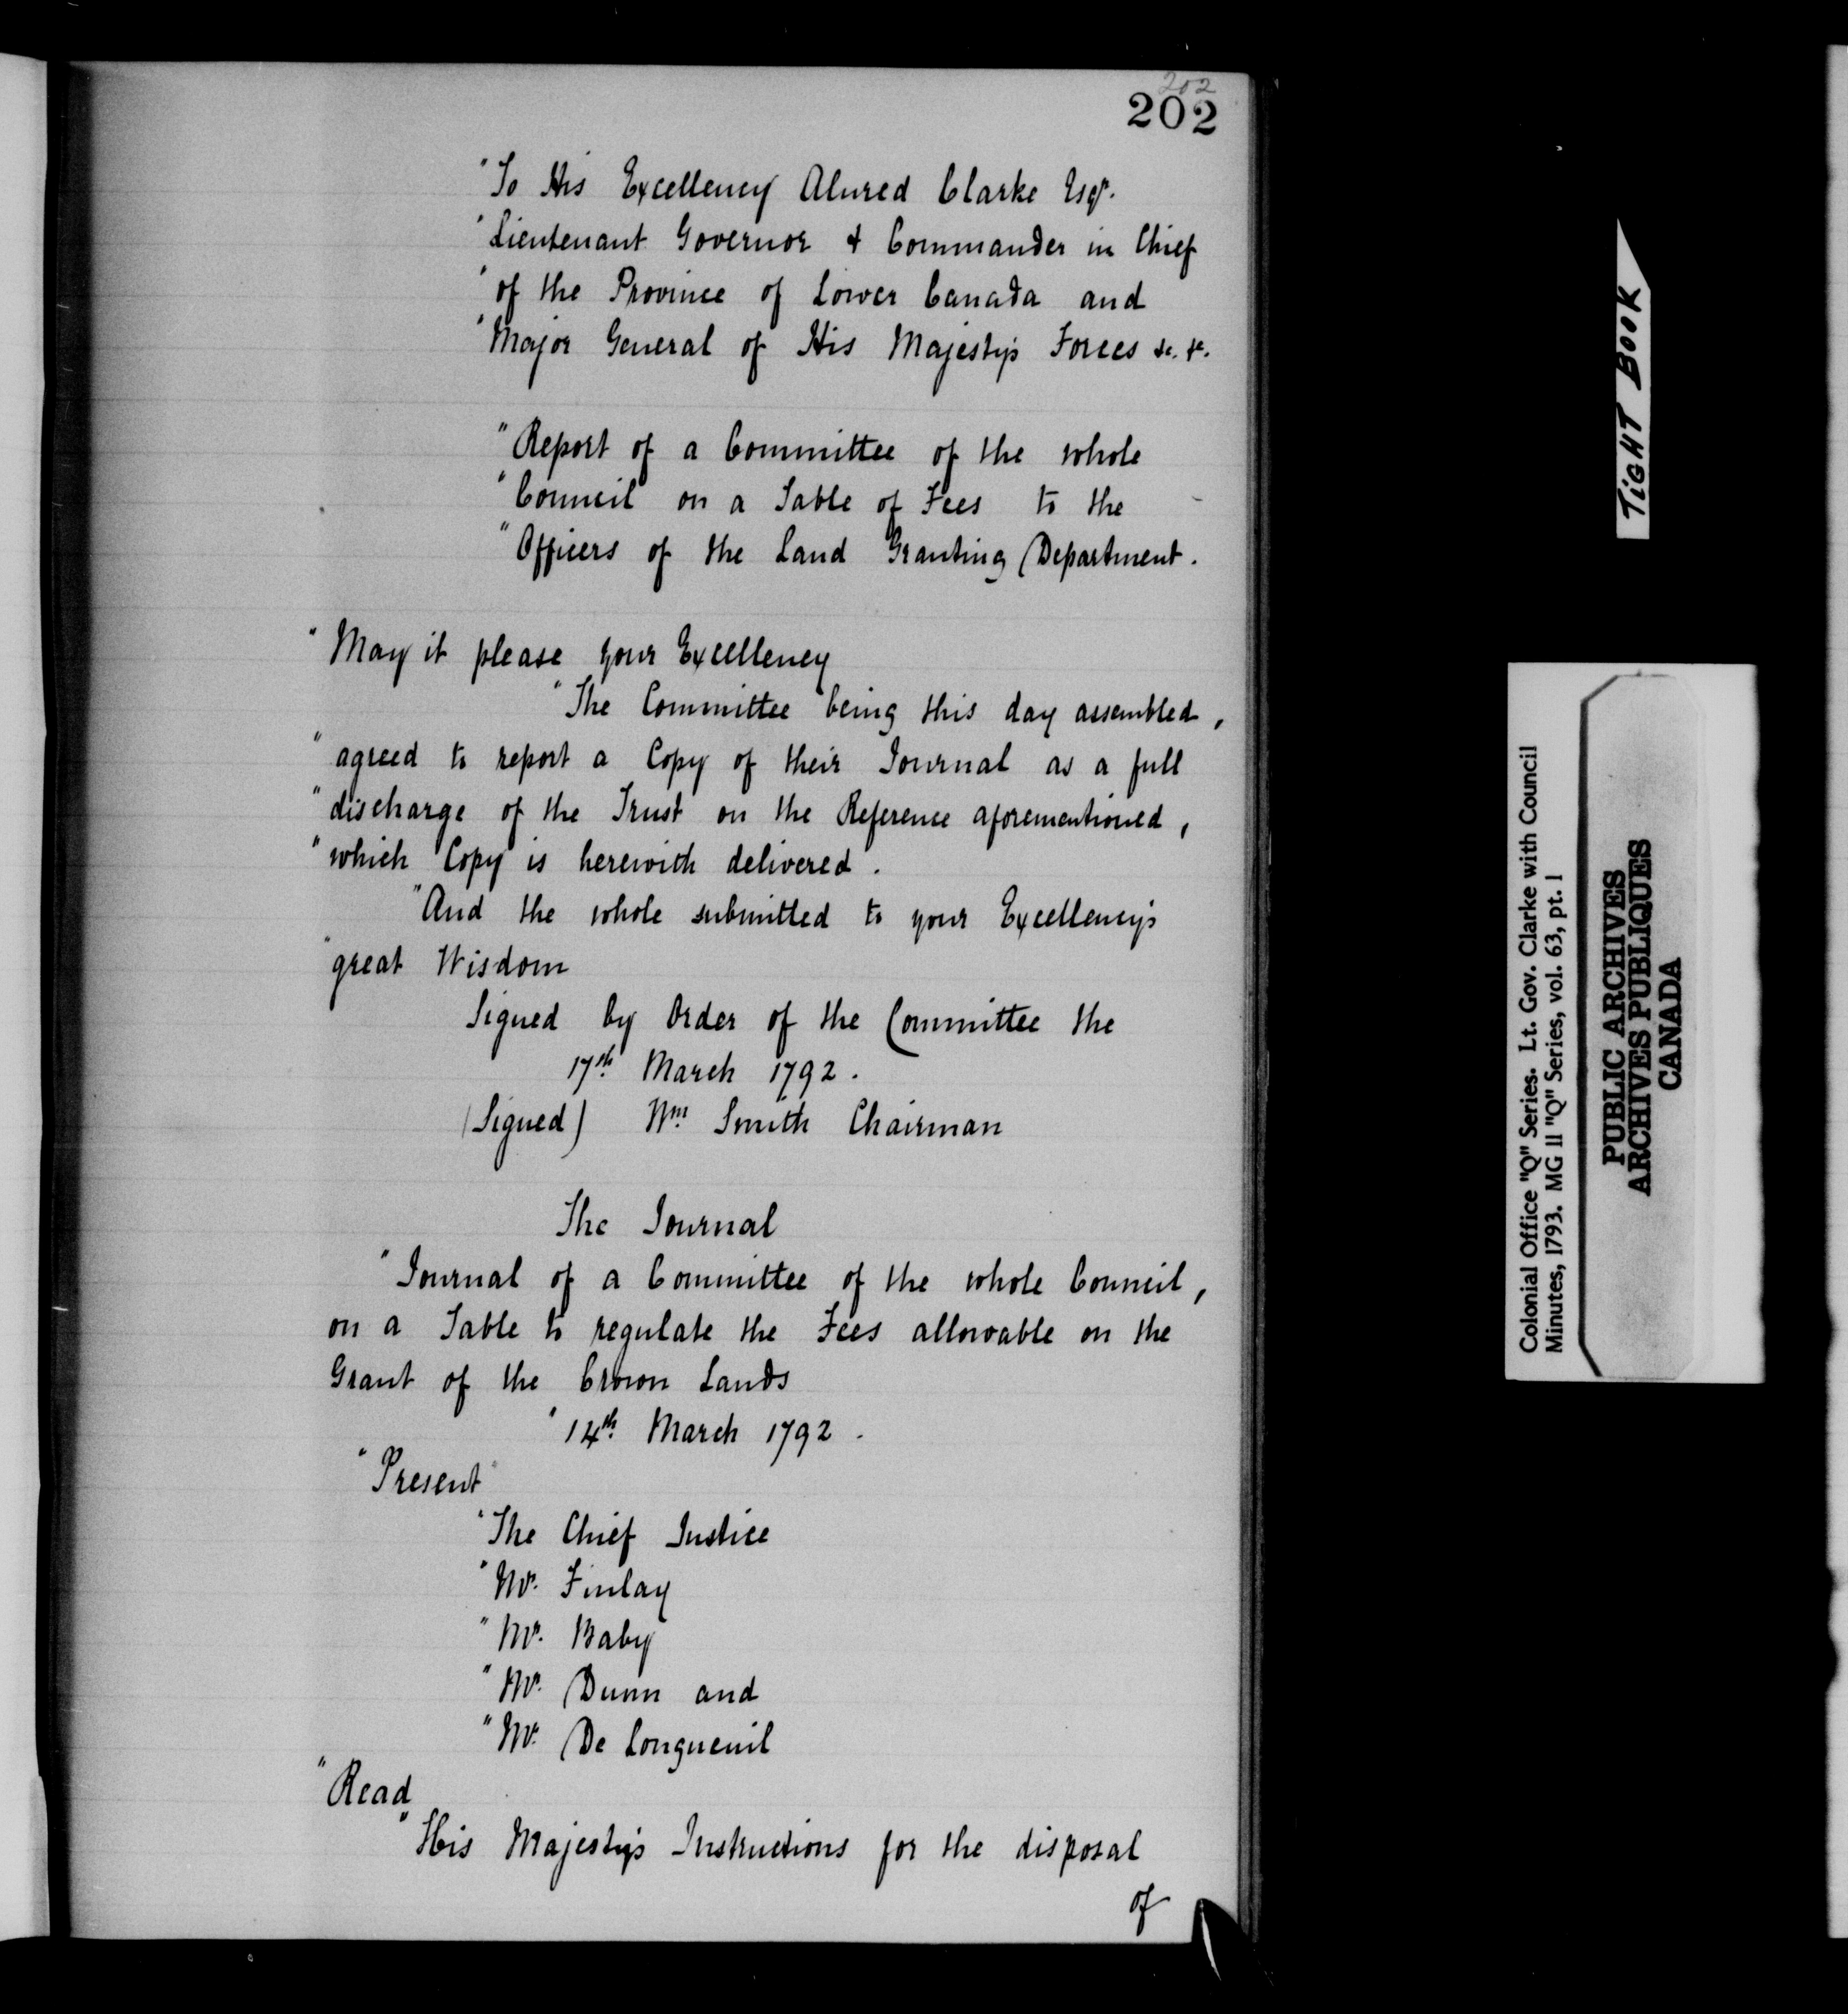 202
202
"To His Excellency Alured Clarke Esqr.
"Lieutenant Governor & Commander in Chief
"of the Province of Lower Canada and
"Major General of His Majesty's Forces &c. &c.
"Report of a Committee of the whole
"Council on a Table of Fees to the
"Officers of the Land Granting Department.
"May it please your Excellency
"The Committee being this day assembled,
"agreed to report a Copy of their Journal as a full
"discharge of the Trust on the Reference aforementioned,
"which Copy is herewith delivered.
"And the whole submitted to your Excellency's
"great Wisdom
Signed by Order of the Committee the
17th March 1792.
(Signed) Wm Smith Chairman
The Journal
"Journal of a Committee of the whole Council,
on a Table to regulate the Fees allowable on the
Grant of the Crown Lands
"14th March 1792.
"Present"
"The Chief Justice
"Mr. Finlay
"Mr. Baby
"Mr. Dunn and
"Mr. De Longueuil
"Read
"His Majesty's Instructions for the disposal
of
TIGHT BOOK
Colonial Office "Q" Series. Lt. Gov. Clarke with Council
Minutes, 1793. MG 11 "Q" Series, vol. 63, pt. 1
PUBLIC ARCHIVES
ARCHIVES PUBLIQUES
CANADA